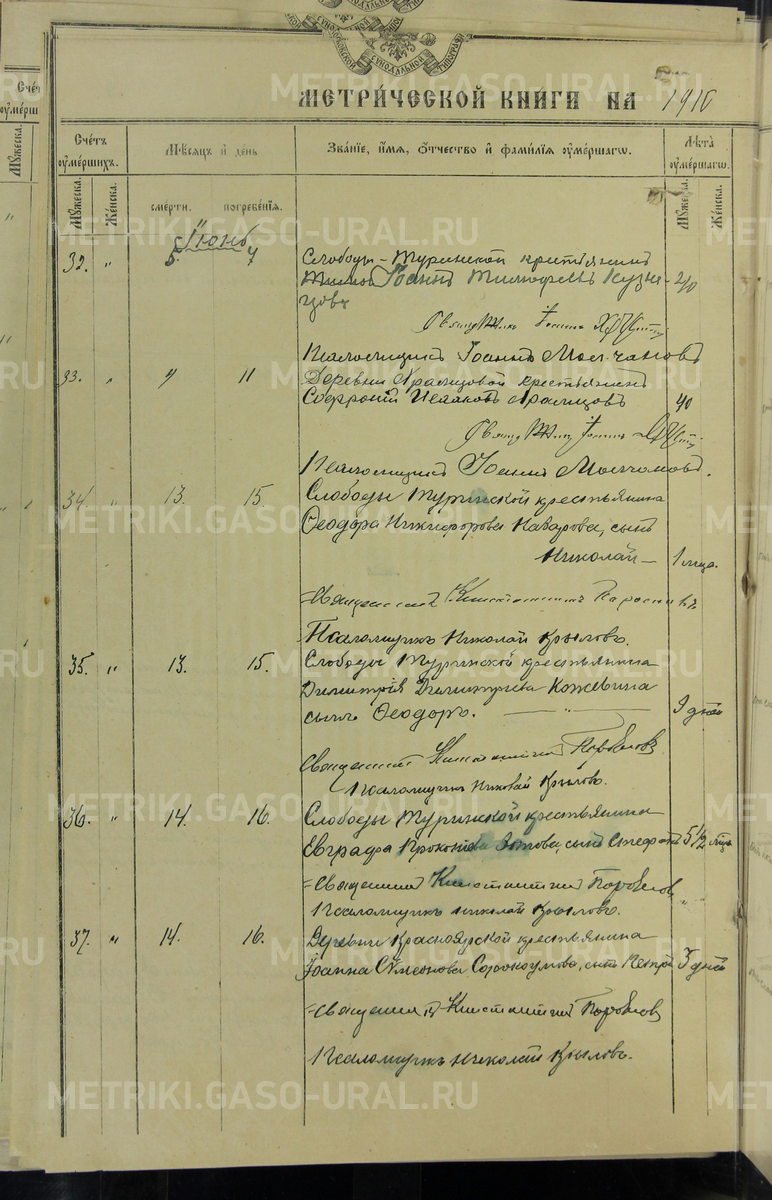 МЕТРИ́ЧЕСКОЙ КНИ́ГИ НА 1910
Счётъ оу҆ме́ршихъ.
Мѣ́сяцъ и҆ день
Зва́нїе, и҆́мя, ѻ҆́тчество и҆ фами́лїя оу҆ме́ршагѡ.
Лѣ́та оу҆ме́ршагѡ.
Мꙋ́жеска.
Же́нска.
сме́рти.
погребе́нїя.
Мꙋ́жеска.
Же́нска.
Iюнь
32. " 5. 7 Слободы-Туринской крестьянинъ
Iоаннъ Тимофеевъ Кузне-
цовъ 40
Псаломщикъ Iоаннъ Молчановъ
33. " 9 11 Деревни Храмцовой крестьянинъ
Софронiй Исааковъ Храмцовъ 40
Псаломщикъ Iоаннъ Молчановъ.
34. " 13. 15. Слободы Туринской крестьянина
Ѳеодора Никифорова Назарова, сынъ
Николай — 1 мца.
Священникъ Константинъ
Псаломщикъ Николай Крыловъ.
35. " 13. 15. Слободы Туринской крестьянина
Димитрiя Димитрiева Кожевина
сынъ Ѳеодоръ. — " — 9 дней
Священникъ Константинъ
Псаломщикъ Николай Крыловъ.
36. " 14. 16. Слободы Туринской крестьянина
Евграфа Прокопiева Зотова, сынъ Стефанъ 5 1/2 мца
Священникъ Константинъ
Псаломщикъ Николай Крыловъ.
37. " 14. 16. Деревни Красноярской крестьянина
Iоанна Сѵмеонова Сорокоумова, сынъ Петръ 3 дней
Священникъ Константинъ
Псаломщикъ Николай Крыловъ.
METRIKI.GASO-URAL.RU